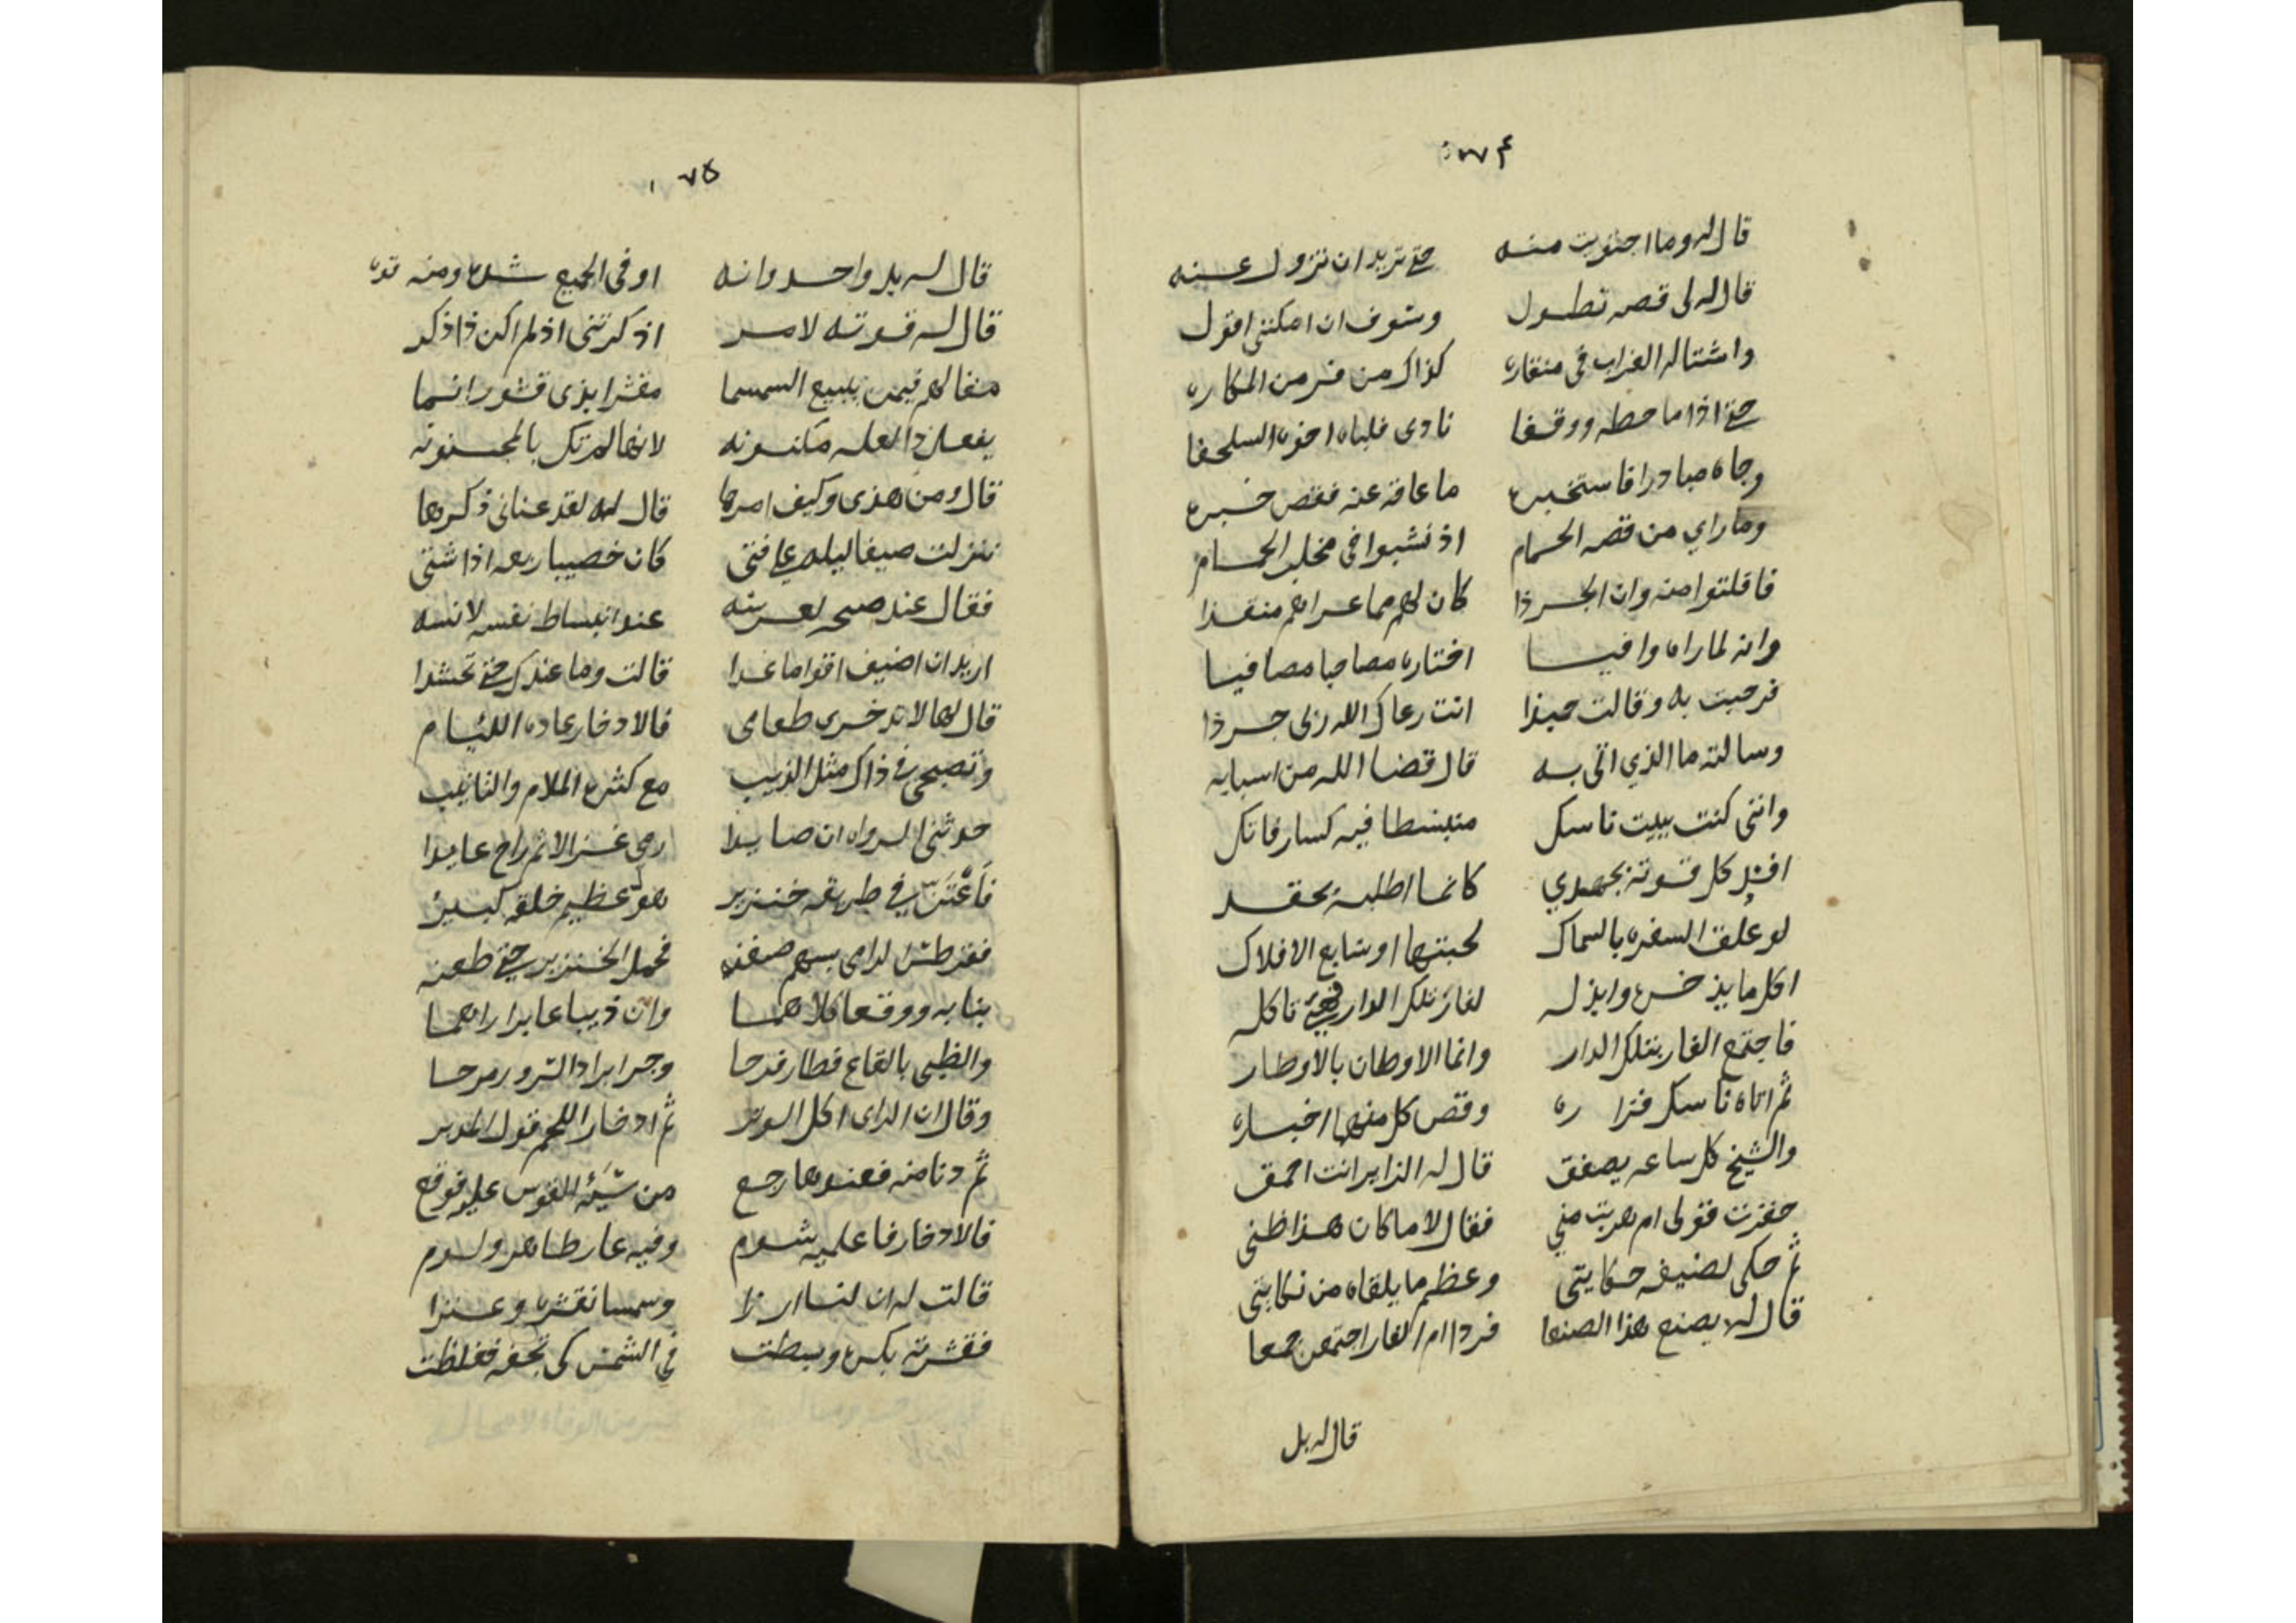 قال له وما اجتويت منه حتى تريد ان تزول عنه
قال له لى قصه تطول وسوف ان امكننى اقول
واشتاله الغراب فى منقاره كذاك من فر من المكاره
حتى اذا ما حطه ووقفا نادى فلباه اخوه السلحفا
وجاه مبادرا فاستخبره ما عاقه عنه فقص خبره
وما راي من قصه الحمام اذ نشبوا فى مخلب الحمام
فافلتوا منه وان الجرذا كان لهم مما عراهم منقذا
وانه لما راه وافيا اختاره مصاحبا مصافيا
فرحبت به وقالت حبذا انت رعاك الله زى جرذا
وسالته ما الذي اتى به قال قضا الله من اسبابه
واننى كنت ببيت ناسك منبسطا فيه كسار فاتك
افسد كل قوته بجهدي كانما اطلبه بحقد
لو علق السفره بالسماك لجبتها او سابع الافلاك
اكل ما يذخره وابذله لفار تلك الدار حتى تاكله
فاجتمع الفار بتلك الدار وانما الاوطان بالاوطار
ثم اتاه ناسك فزاره وقص كل منهما اخباره
والشيخ كل ساعه يصفق قال له الزاير انت احمق
حقرت قولى ام هربت مني فقال لا ما كان هذا ظنى
ثم حكى لضيفه حكايتى وعظم ما يلقاه من نكايتى
قال له يصنع هذا الصنعا فرد ام الفار اجتمعن جمعا
قال له بل
٧٥
قال له بل واحد وانه اوفى الجميع شره ومنه
قال له قوته لامر اذكرتنى اذ لم اكن ذا ذكر
مقالهم فيمن يبيع السمسما مقشرا بذى قشور انما
يفعل ذا لعله مكنونه لانها لم تك بالمجنونه
قال ومن هذى وكيف امرها قال له لقد عنانى ذكرها
نزلت ضيفا ليله على فتى كان خصيبا ربعه اذا شتى
فقال عند صبحه لعرسه عند انبساط نفسه لانسه
اريد ان اضيف اقواما غدا قالت وما عندك حتى تحشدا
قال لها لا تدخرى طعامى فالادخار عاده اللئيام
وتصبحى فى ذاك مثل الذيب مع كثره الملام والتانيب
حدثنى الرواه ان صايدا رمى غزالا ثم راح عايدا
فاعتن في طريقه خنزير هو عظيم خلقه كبير
فقرطس الراى بسهم صفنه فحمل الخنزير حتى طعنه
بنابه ووقعا كلاهما وان ذيبا عابرا راهما
والظبى بالقاع فطار فرحا وجر ابراد السرور مرحا
وقال ان الراى اكل الوتر ثم ادخار اللحم قول المدبر
ثم دنا منه فعندها رجع من سية القوس عليه فوقع
فالادخار فاعلميه شوم وفيه عار ظاهر ولوم
قالت له ان لنا ارزا وسمسما نقشره وعنزا
فقشرته بكره وبسطت في الشمس كى تجفه فغلظت